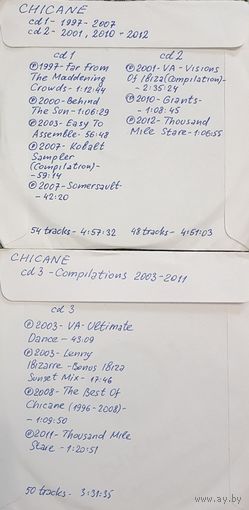 CHICANE
cd 1 - 1997-2007
cd 2 - 2001, 2010 - 2012
cd 1
Ⓟ1997- Far From
The Maddening
Crowds - 1:12:44
Ⓟ2000- Behind
The Sun - 1:06:29
Ⓟ2003- Easy To
Assemble- 56:48
Ⓟ2007- Kobalt
Sampler
(Compilation)-
- 59:14
Ⓟ2007- Somersault-
- 42:20
cd 2
Ⓟ2001- VA- Visions
Of Ibiza (Compilation)-
- 2:35:24
Ⓟ2010- Giants-
- 1:08:45
Ⓟ2012- Thousand
Mile Stare - 1:06:55
54 tracks- 4:57:32
48 tracks- 4:51:03
CHICANE
cd 3 - Compilations 2003-2011
cd 3
Ⓟ2003- VA- Ultimate
Dance - 43:09
Ⓟ2003- Lenny
Ibizarre - Bonus Ibiza
Sunset Mix - 17:46
Ⓟ2008- The Best Of
Chicane (1996-2008)-
- 1:09:50
Ⓟ2011- Thousand Mile
Stare - 1:20:51
50 tracks- 3:31:35
www.ay.by